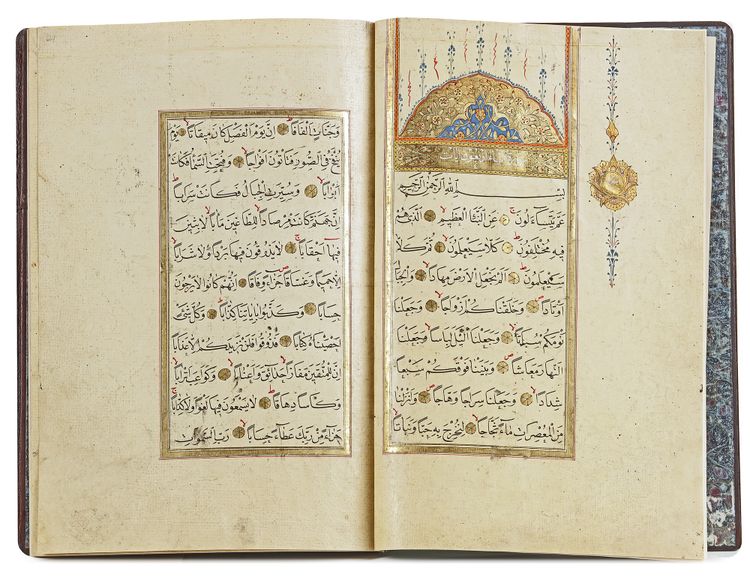 بِسْمِ اللهِ الرَّحْمٰنِ الرَّحِيمِ
عَمَّ يَتَسَاءَلُونَ عَنِ النَّبَأِ الْعَظِيمِ الَّذِى هُمْ
فِيهِ مُخْتَلِفُونَ كَلَّا سَيَعْلَمُونَ ثُمَّ كَلَّا
سَيَعْلَمُونَ اَلَمْ نَجْعَلِ الْاَرْضَ مِهَادًا وَالْجِبَالَ
اَوْتَادًا وَخَلَقْنَاكُمْ اَزْوَاجًا وَجَعَلْنَا
نَوْمَكُمْ سُبَاتًا وَجَعَلْنَا الَّيْلَ لِبَاسًا وَجَعَلْنَا
النَّهَارَ مَعَاشًا وَبَنَيْنَا فَوْقَكُمْ سَبْعًا
شِدَادًا وَجَعَلْنَا سِرَاجًا وَهَّاجًا وَاَنْزَلْنَا
مِنَ الْمُعْصِرَاتِ مَاءً ثَجَّاجًا لِنُخْرِجَ بِهِ حَبًّا وَنَبَاتًا
وَجَنَّاتٍ اَلْفَافًا اِنَّ يَوْمَ الْفَصْلِ كَانَ مِيقَاتًا يَوْمَ
يُنْفَخُ فِى الصُّورِ فَتَأْتُونَ اَفْوَاجًا وَفُتِحَتِ السَّمَاءُ فَكَانَتْ
اَبْوَابًا وَسُيِّرَتِ الْجِبَالُ فَكَانَتْ سَرَابًا
اِنَّ جَهَنَّمَ كَانَتْ مِرْصَادًا لِلطَّاغِينَ مَاٰبًا لَابِثِينَ
فِيهَا اَحْقَابًا لَا يَذُوقُونَ فِيهَا بَرْدًا وَلَا شَرَابًا
اِلَّا حَمِيمًا وَغَسَّاقًا جَزَاءً وِفَاقًا اِنَّهُمْ كَانُوا لَا يَرْجُونَ
حِسَابًا وَكَذَّبُوا بِاٰيَاتِنَا كِذَّابًا وَكُلَّ شَىْءٍ
اَحْصَيْنَاهُ كِتَابًا فَذُوقُوا فَلَنْ نَزِيدَكُمْ اِلَّا عَذَابًا
اِنَّ لِلْمُتَّقِينَ مَفَازًا حَدَائِقَ وَاَعْنَابًا وَكَوَاعِبَ اَتْرَابًا
وَكَأْسًا دِهَاقًا لَا يَسْمَعُونَ فِيهَا لَغْوًا وَلَا كِذَّابًا
جَزَاءً مِنْ رَبِّكَ عَطَاءً حِسَابًا رَبِّ السَّمٰوَاتِ